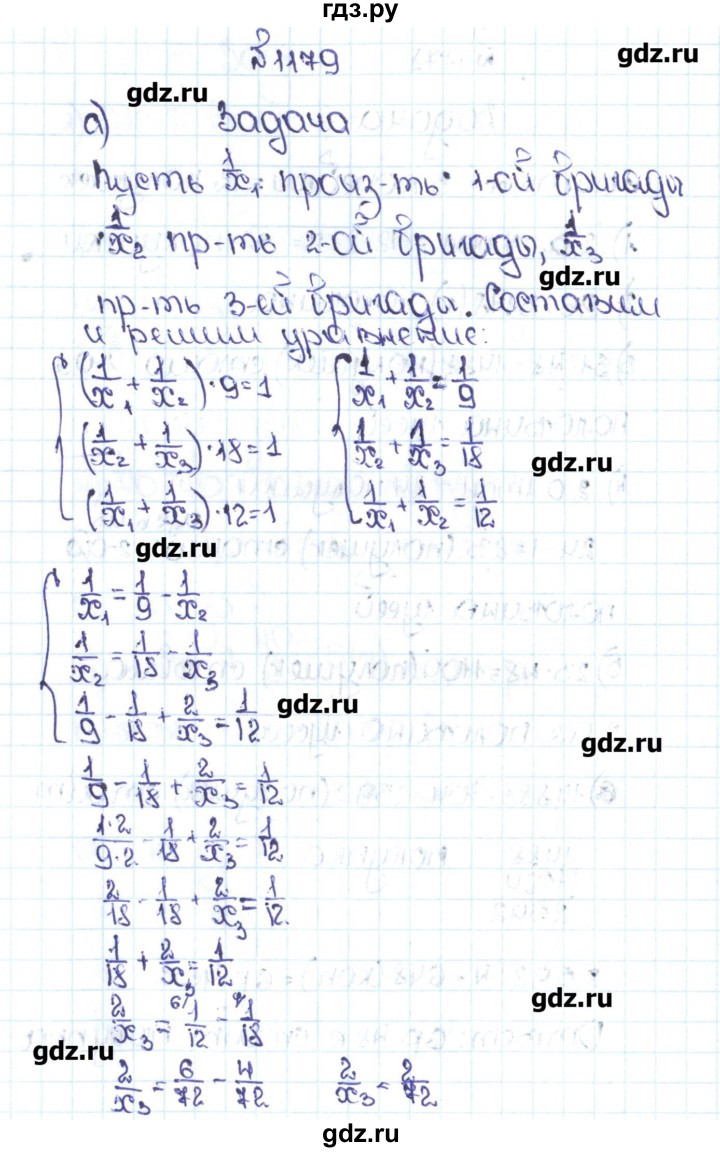 гдз.ру
№1179
gdz.ru
gdz.ru
а) Задача
Пусть 1/x₁ произ-ть 1-ой бригады
1/x₂ пр-ть 2-ой бригады, 1/x₃
gdz.ru
пр-ть 3-ей бригады. Составим
и решим уравнение:
(1/x₁ + 1/x₂)·9=1 1/x₁ + 1/x₂ = 1/9
(1/x₂ + 1/x₃)·18=1 1/x₂ + 1/x₃ = 1/18
gdz.ru
(1/x₁ + 1/x₃)·12=1 1/x₁ + 1/x₂ = 1/12
gdz.ru
1/x₁ = 1/9 - 1/x₂
1/x₂ = 1/18 - 1/x₃
gdz.ru
1/9 - 1/18 + 2/x₃ = 1/12
gdz.ru
1/9 - 1/18 + 2/x₃ = 1/12
1·2/9·2 - 1/18 + 2/x₃ = 1/12
2/18 - 1/18 + 2/x₃ = 1/12
1/18 + 2/x₃ = 1/12
2/x₃ = 6/ 1/12 - 4/ 1/18
gdz.ru
gdz.ru
2/x₃ = 6/72 - 4/72 2/x₃ = 2/72
gdz.ru